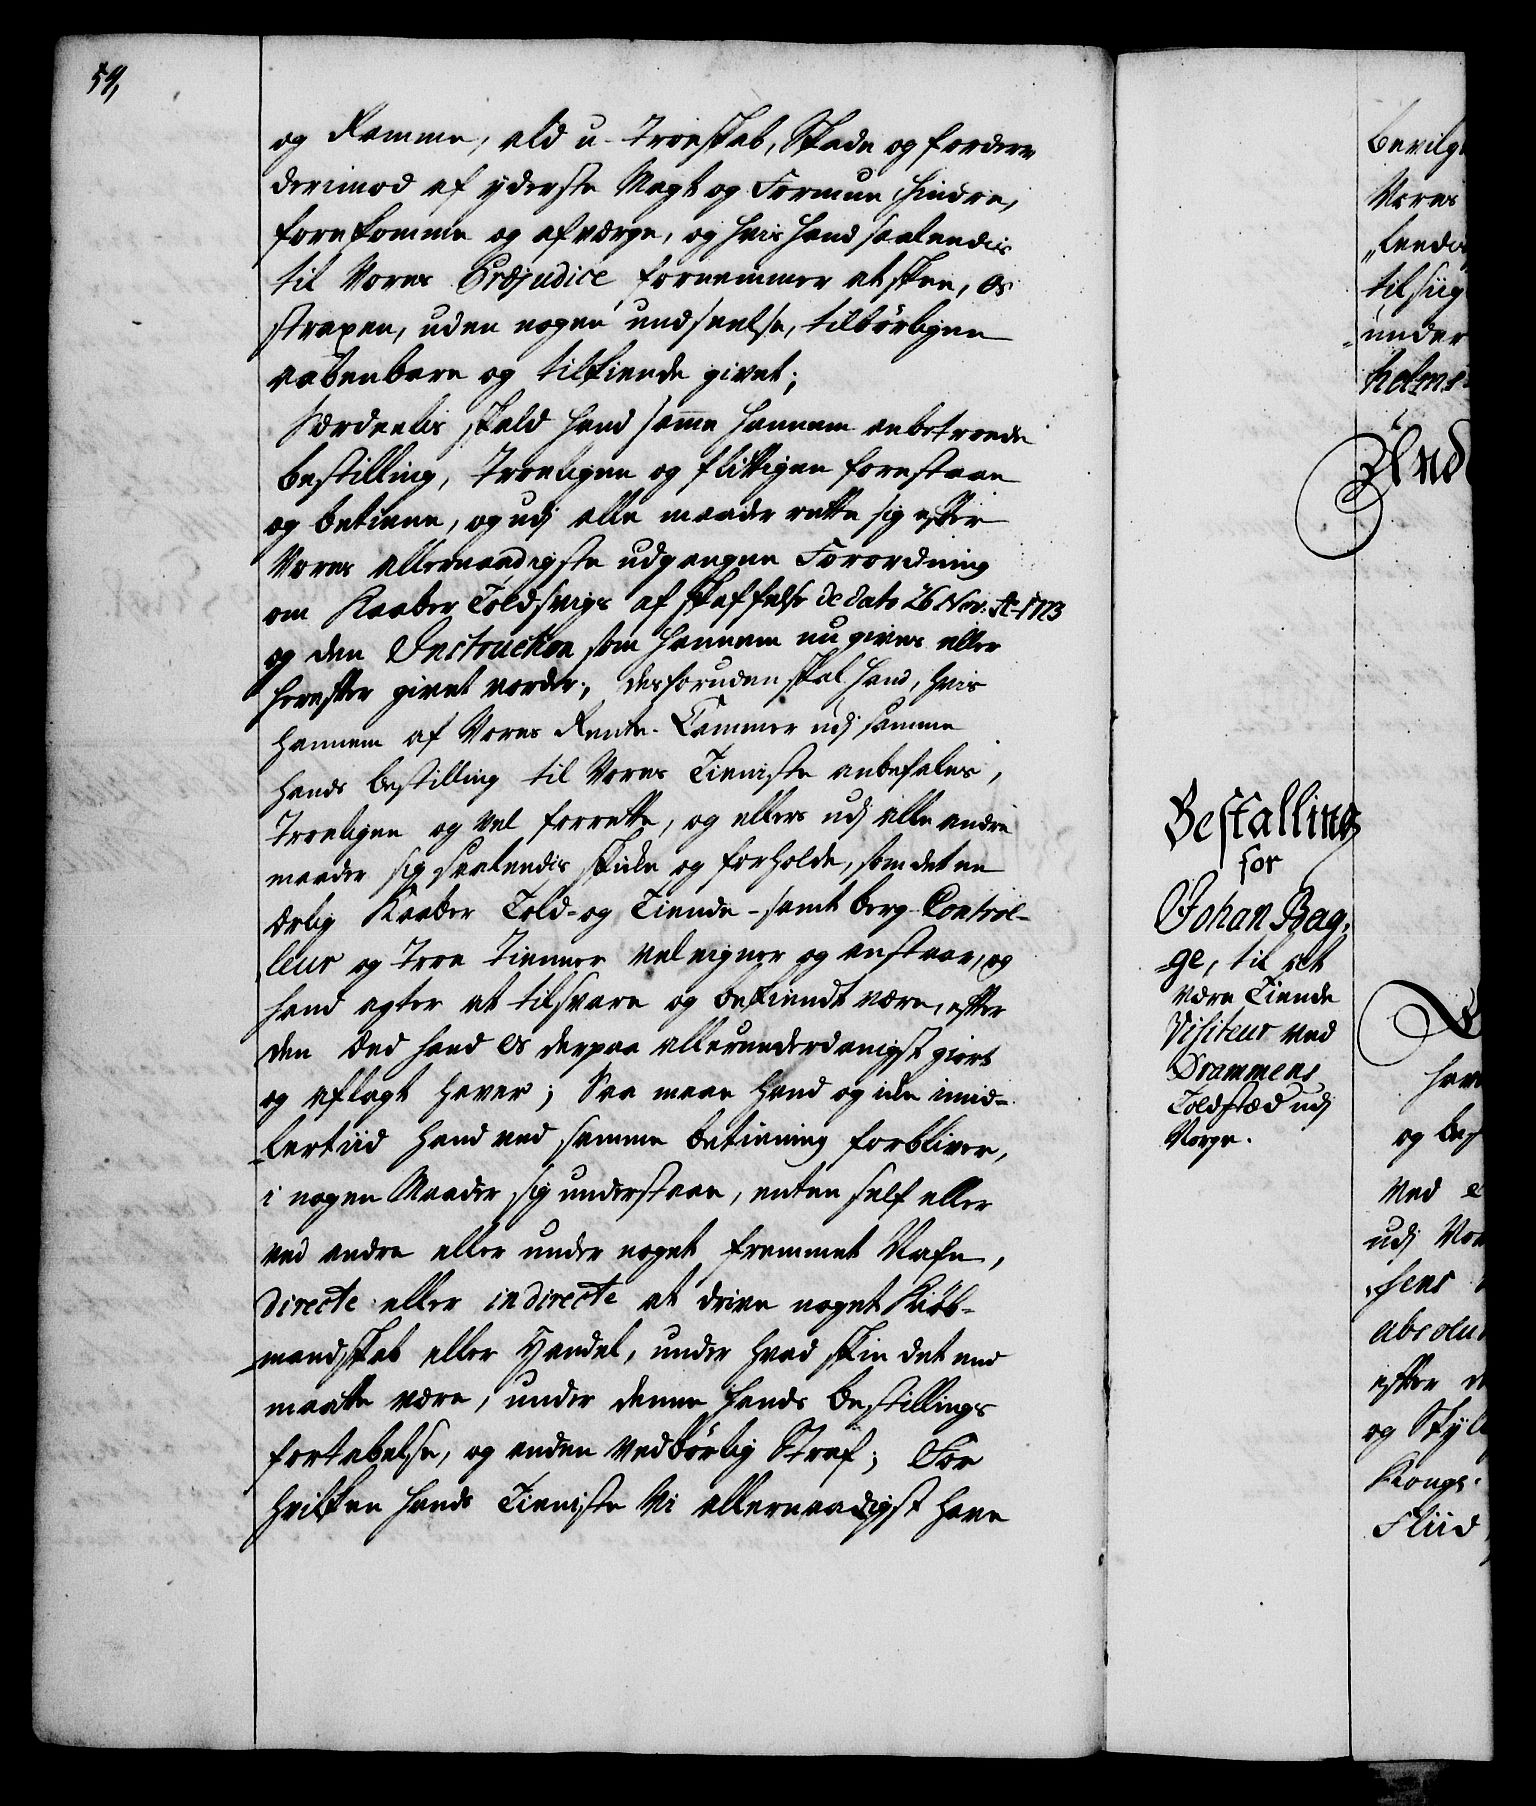 59,
og Ramme, ald u-Troeskab, Skade og fordærv
derimod af yderste Magt og Formue hindre,
forekomme og afværge, og hvis hand saaledes
til Vores Præjudice fornemmer at skee, Os
straxen, uden nogen undseelse, tilbørligen
aabenbare og tilkiende givet;
Særdeelis skald hand samme hannem anbetroede
bestilling, Troeligen og flittigen forestaae
og betiene, og udj alle maader rette sig efter
Vores allernaadigste udgangne Forordning
om Kaaber Toldsvigs afskaffelse de dato 26 Nov: Ao 1723
og den Instruction som hannem nu gives eller
herefter givet vorder; desforuden skal hand, hvis
hannem af Vores Rente-Cammer udj samme
hands bestilling til Vores Tieniste anbefales,
Troeligen og vel forrette, og ellers udj alle andre
maader sig saaledes skicke og forholde, som det en
Ærlig Kaaber Told- og Tiende- samt berg-Control-
leur og Troe Tienner vel eigner og anstaar, og
hand agter at tilsvare og bekiendt være, efter
den Æed hand Os derpaa allerunderdanigst giort
og aflagt haver; Saa maae hand og icke imid-
lertiid hand ved samme betiening forbliver,
i nogen Maader sig understaae, enten self eller
ved andre eller under noget fremmet Nafn,
directe eller indirecte at drive noget Kiøb-
mandskab eller Handel, under hvad skin det end
maatte være, under denne hands bestillings
fortabelse, og anden vedbørlig Straf; For
hvilken hands Tieniste Vi allernaadigst have
Bestalling
for
Johan Bag-
ge, til at
være Tiende
Visiteur ved
Drammens
Toldsted udj
Norge.
bevilg
Vores
tilsiig
under
holms
And
og beg
ved
udj
absolu
efter
og
Kongs
Fliid